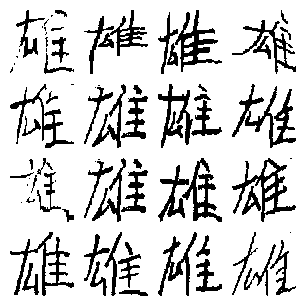 雄雄雄雄
雄雄雄雄
雄雄雄雄
雄雄雄雄